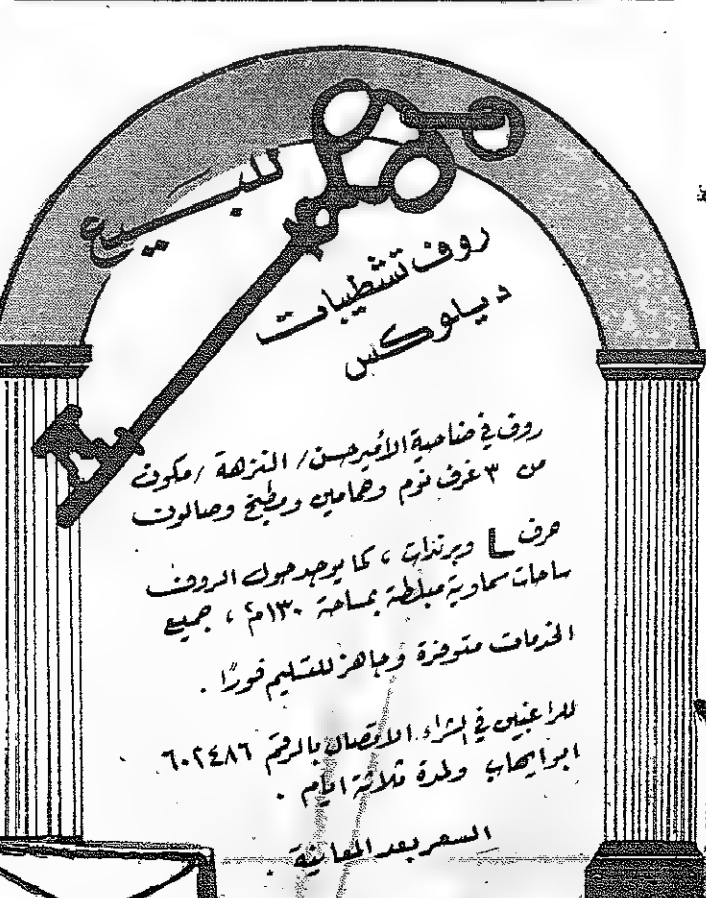 للبيع
روف تشطيبات
ديلوكس
روف في ضاحية الأمير حسن / النزهة / مكون
من ٣ غرف نوم وحمامين ومطبخ وصالون
حرف L وبرندات ، كما يوجد حول الروف
ساحات سماوية مبلطة بمساحة ١٣٠م٢ ، جميع
الخدمات متوفرة وجاهز للتسليم فورًا .
للراغبين في الشراء الاتصال بالرقم ٦٠٢٤٨٦
ابو ايهاب ولمدة ثلاثة ايام .
السعر بعد المعاينة .